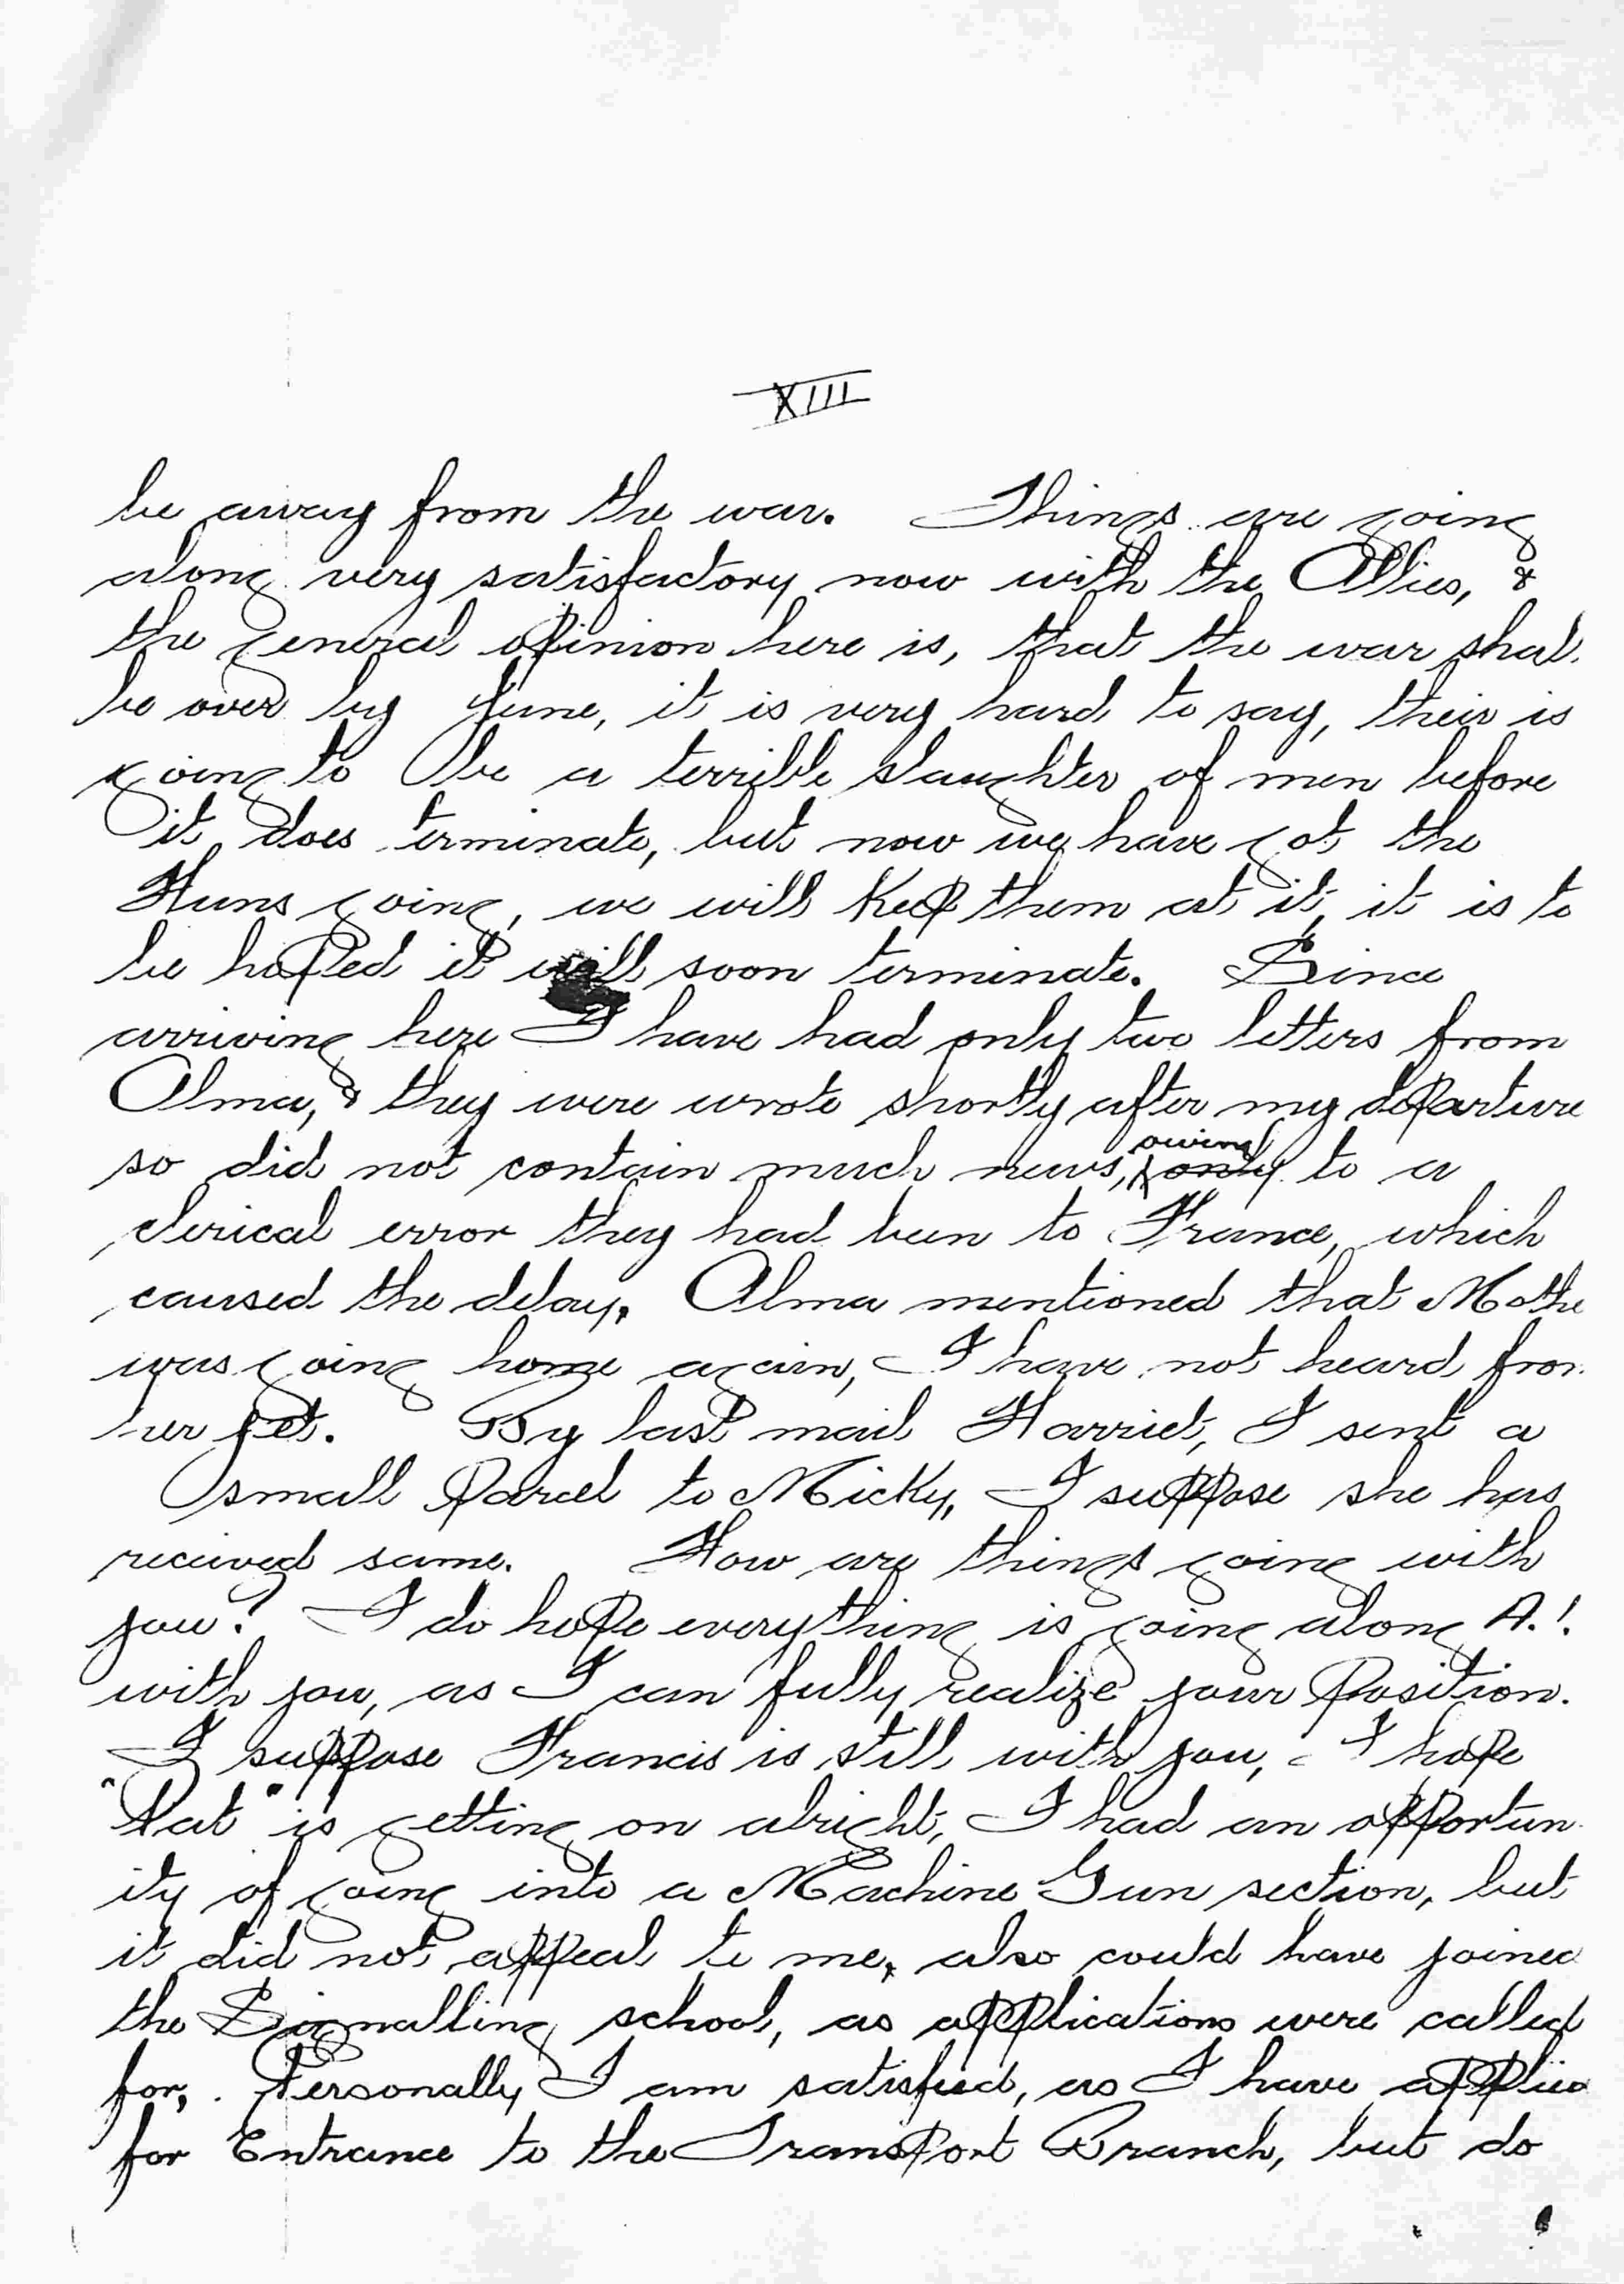 XIII
be away from the war. Things are going
along very satisfactory now with the Allies, &
the general opinion here is, that the war shal
be over by June, it is very hard to say, their is
going to be a terrible slaughter of men before
it does terminate, but now we have got the
Huns going, we will keep them at it, it is to
be hoped it will soon terminate. Since
arriving here I have had only two letters from
Alma, & they were wrote shortly after my departure
so did not contain much news, owing only to a
clerical error they had been to France, which
caused the delay. Alma mentioned that Mothe
was going home again, I have not heard from
her yet. By last mail Harriet, I sent a
small Parcel to Micky, I suppose she has
received same. How are things going with
you? I do hope everything is going along A.1.
with you, as I can fully realize your Position.
I suppose Francis is still with you, I hope
"Pat" is getting on alright, I had an opportun
ity of going into a Machine Gun section, but
it did not appeal to me, also could have joined
the Signalling school, as applications were called
for, . Personally I am satisfied, as I have applied
for Entrance to the Transport Branch, but do